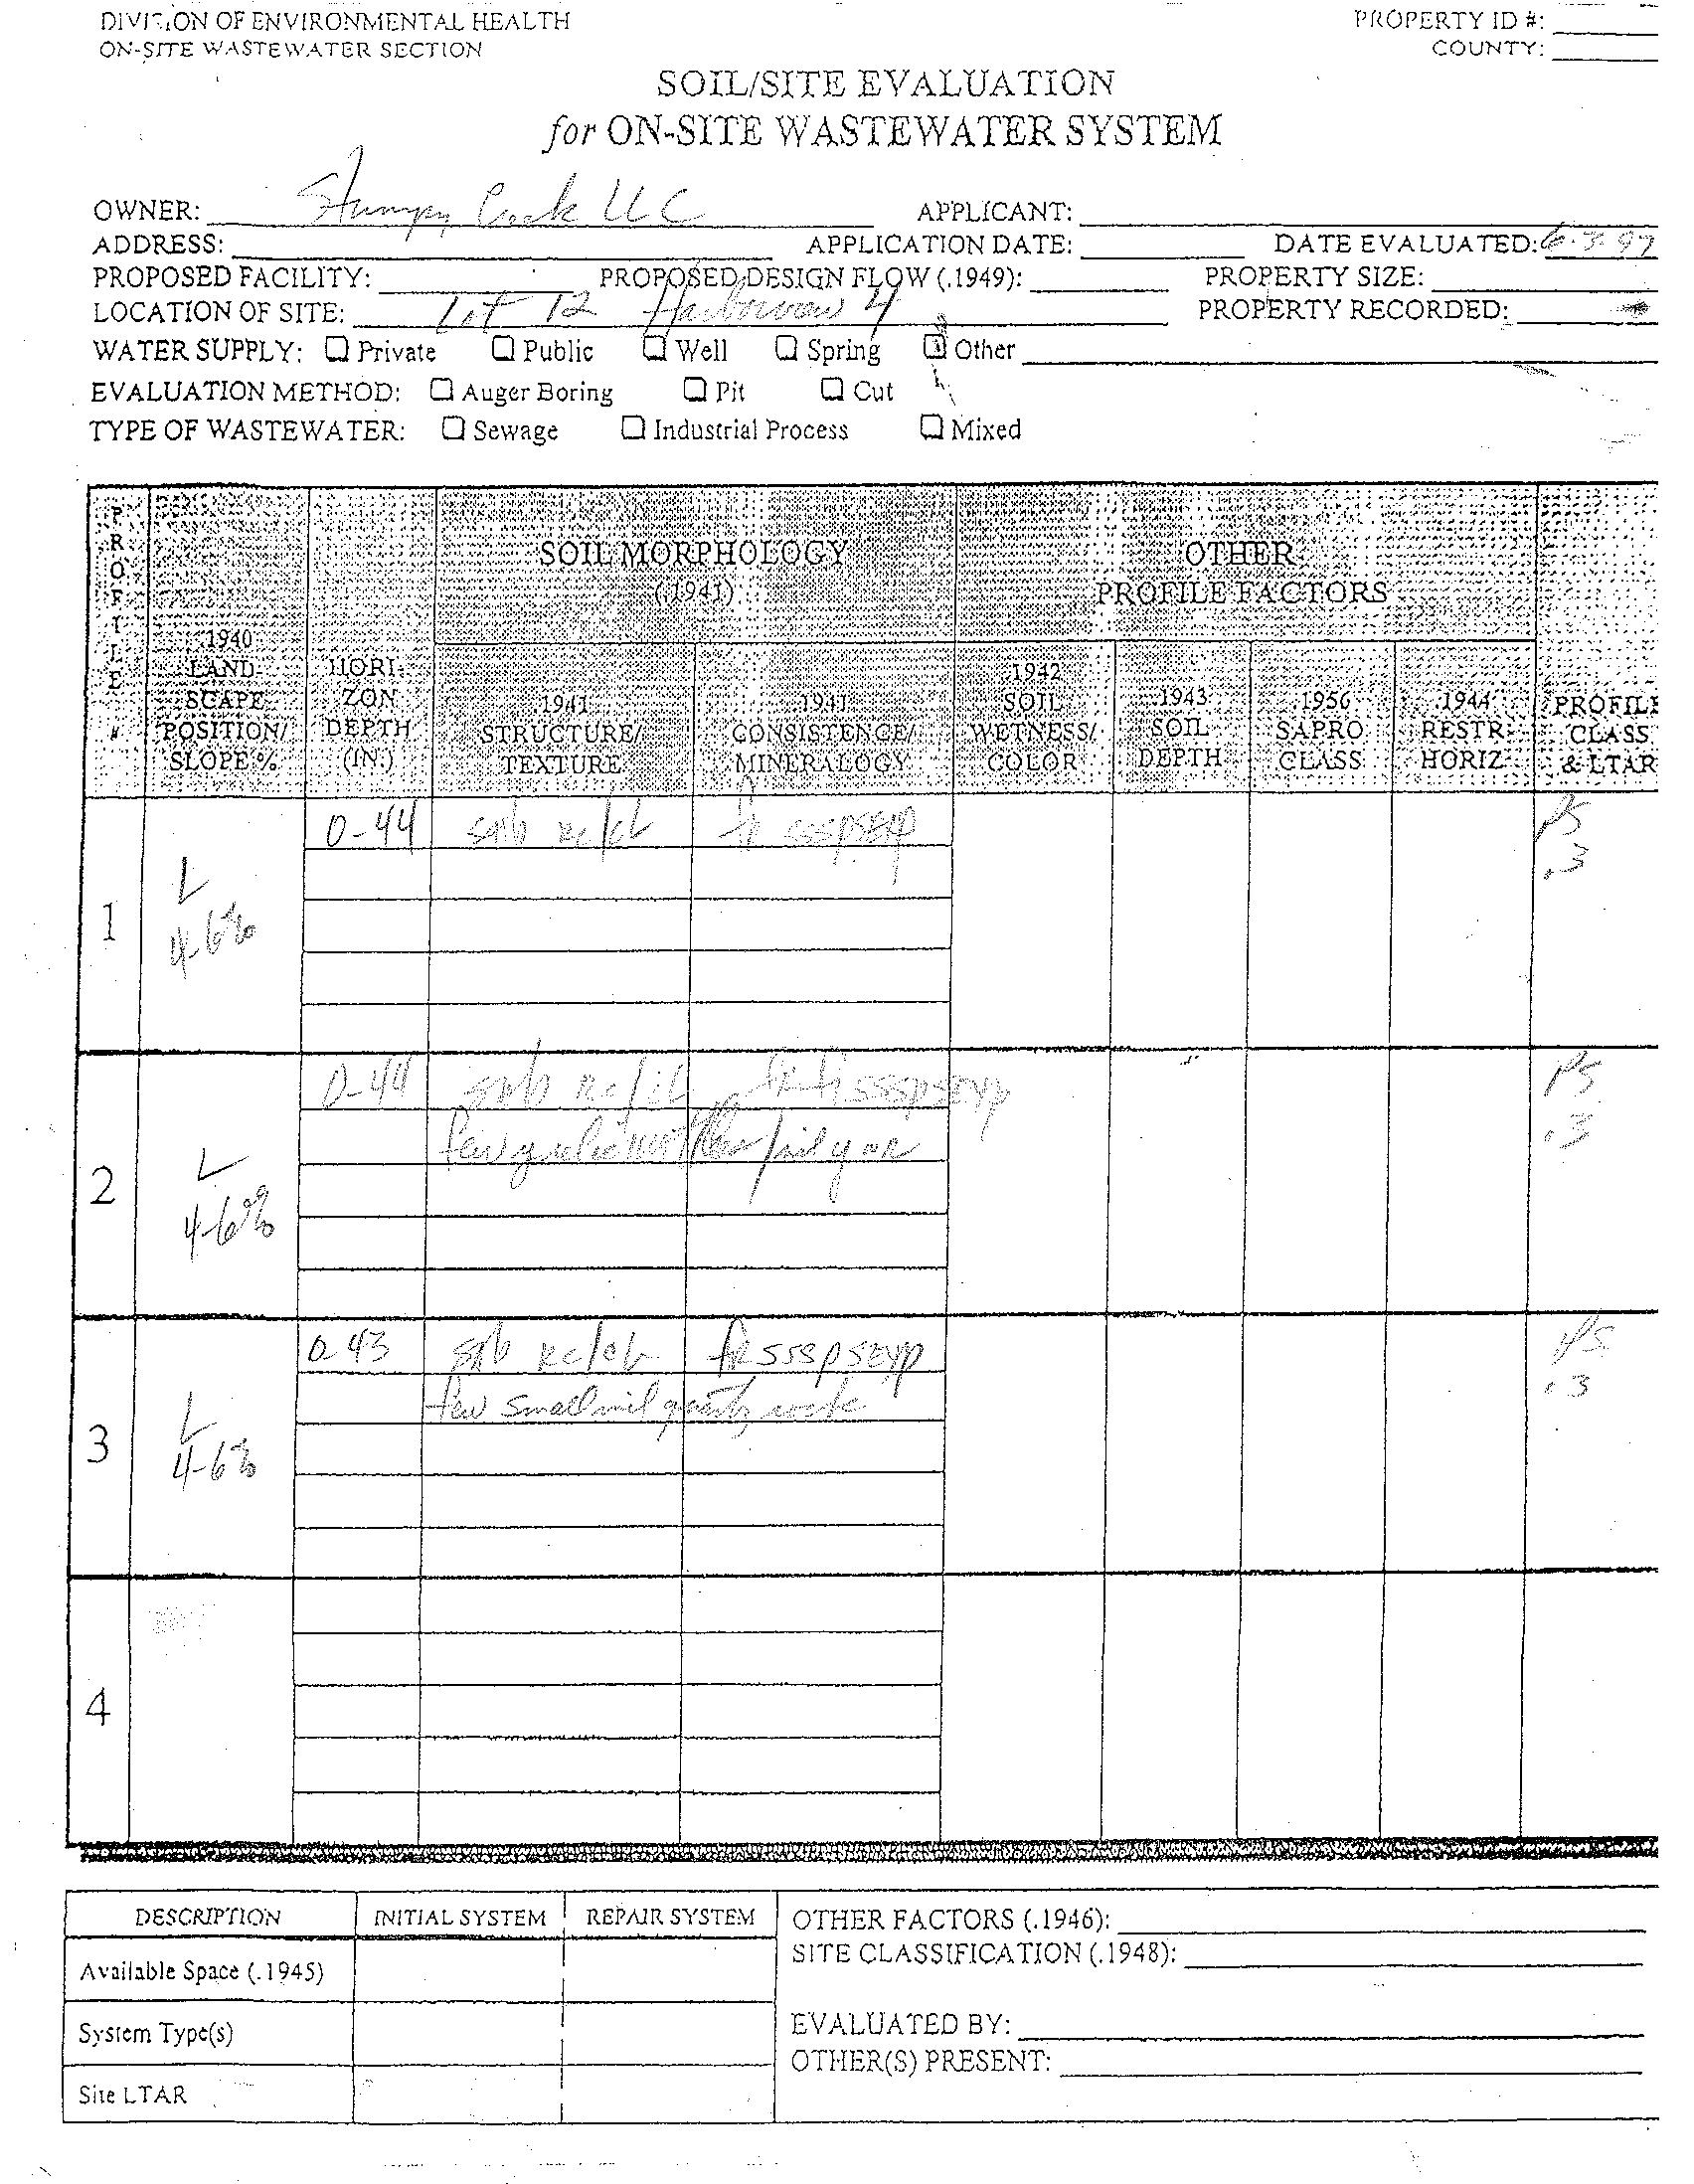 DIVISION OF ENVIRONMENTAL HEALTH
ON-SITE WASTEWATER SECTION
PROPERTY ID #:
COUNTY:
SOIL/SITE EVALUATION
for ON-SITE WASTEWATER SYSTEM
OWNER: Stumpy Creek LLC APPLICANT:
ADDRESS: APPLICATION DATE: DATE EVALUATED: 6-3-97
PROPOSED FACILITY: PROPOSED DESIGN FLOW (.1949): PROPERTY SIZE:
LOCATION OF SITE: Lot 12 Harborview 4 PROPERTY RECORDED:
WATER SUPPLY: Private Public Well Spring Other
EVALUATION METHOD: Auger Boring Pit Cut
TYPE OF WASTEWATER: Sewage Industrial Process Mixed
PROFILE #
.1940 LAND-SCAPE POSITION/ SLOPE %
HORI-ZON DEPTH (IN.)
SOIL MORPHOLOGY (.1941)
.1941 STRUCTURE/ TEXTURE
.1941 CONSISTENCE/ MINERALOGY
OTHER PROFILE FACTORS
.1942 SOIL WETNESS/ COLOR
.1943 SOIL DEPTH
.1956 SAPRO CLASS
.1944 RESTR HORIZ
PROFILE CLASS & LTAR
1 L 4-6% 0-44 PS .3
2 L 4-6% 0-44 PS .3
few
3 L 4-6% 0-43 PS .3
few small quartz rock
4
DESCRIPTION INITIAL SYSTEM REPAIR SYSTEM
Available Space (.1945)
System Type(s)
Site LTAR
OTHER FACTORS (.1946):
SITE CLASSIFICATION (.1948):
EVALUATED BY:
OTHER(S) PRESENT: